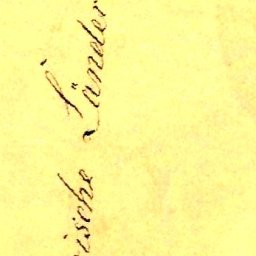 ische Länder